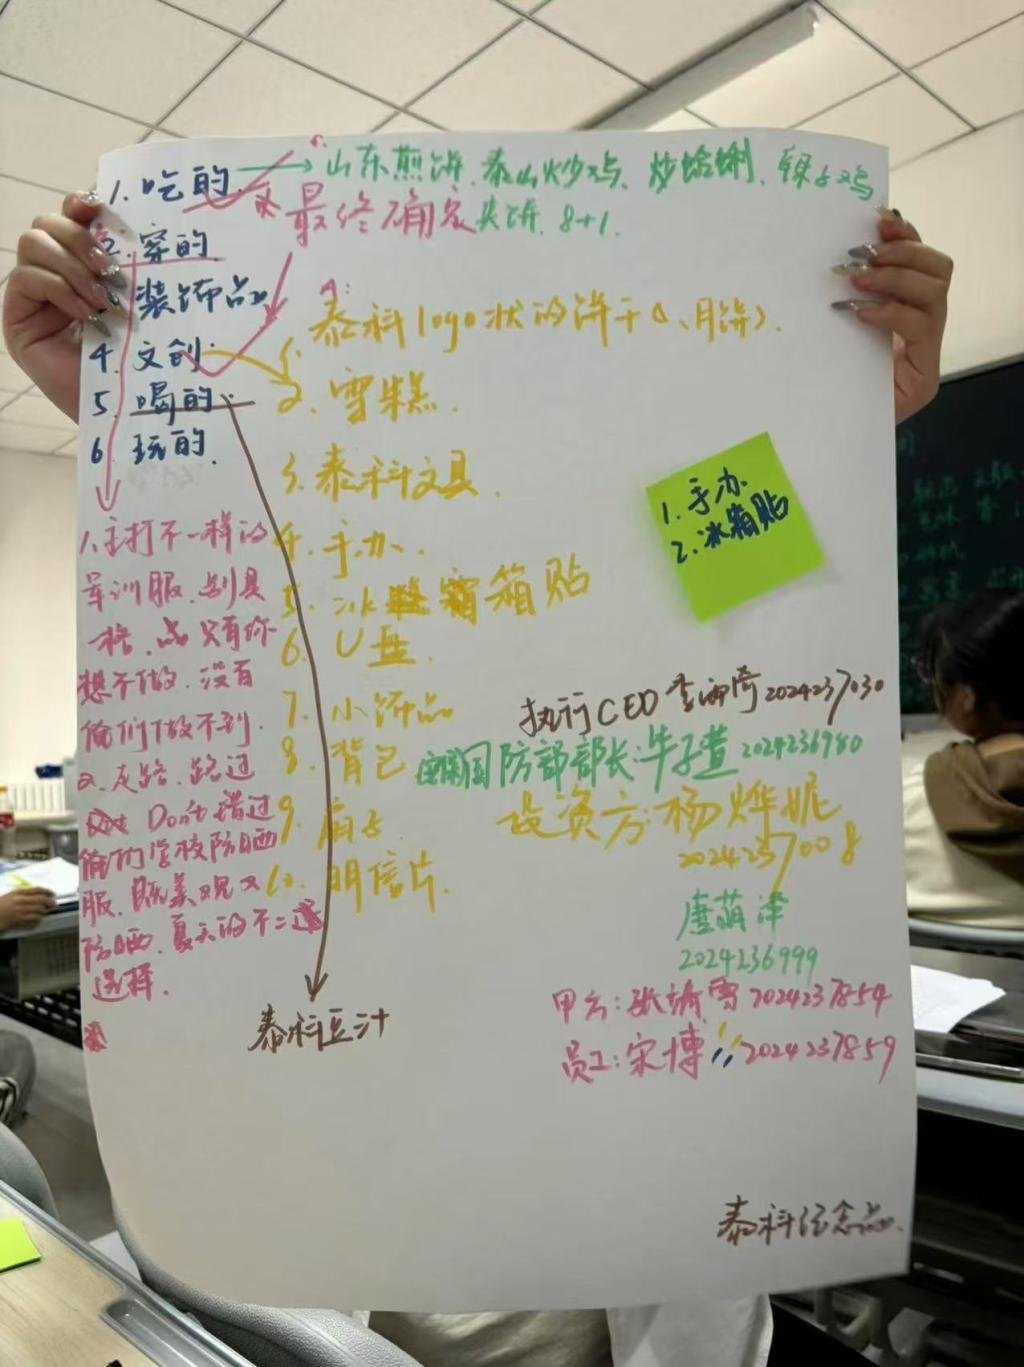 1. 吃的 → 山东煎饼、泰山炒鸡、炒蛤蜊、辣子鸡
最终确定 煎饼. 8+1.
2. 穿的
装饰品
4. 文创
5. 喝的
6. 玩的.
1. 泰科logo状的饼干(、月饼).
2. 雪糕.
3. 泰科文具.
4. 手办.
5. 冰箱贴
6. U盘.
7. 小饰品
8. 背包
9. 扇子.
10. 明信片.
1. 手办
2. 冰箱贴
1. 主打不一样的
军训服. 别具
一格. 只有你
想不做. 没有
俺们做不到.
2. 走路. 路过
Don't 错过
俺们学校防晒
服. 既美观又
防晒. 夏天的不二
选择.
泰科豆汁
执行CEO 2024237030
国防部部长: 牛子萱 2024236980
投资方: 杨烨妮
2024237008
唐萌泽
2024236999
甲方: 张 雪 2024237854
员工: 宋博 2024237859
泰科纪念品.